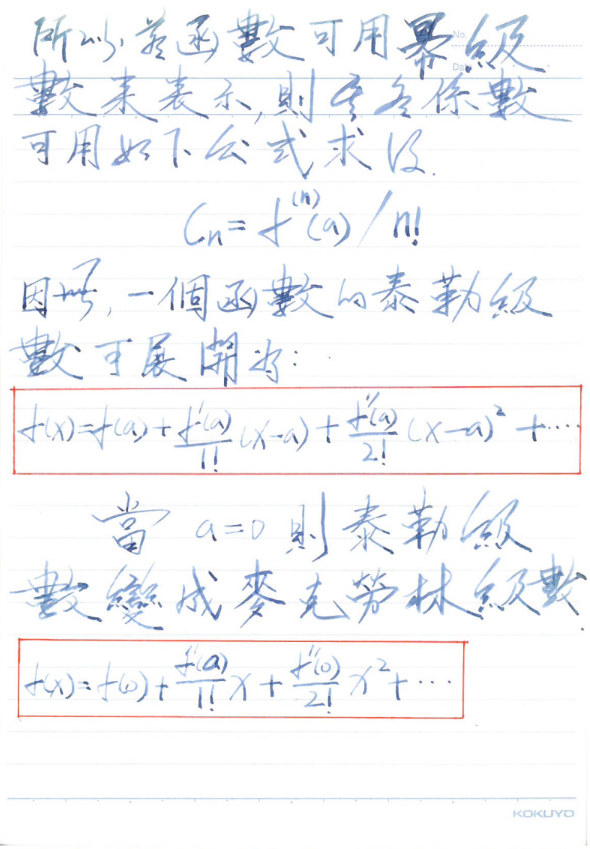 所以,若函數可用冪級
數來表示,則其各係數
可用如下公式求得.
Cn = f⁽ⁿ⁾(a) / n!
因此,一個函數的泰勒級
數可展開為:
f(x)=f(a)+f'(a)/1! (x-a)+f''(a)/2! (x-a)²+····
當 a=0 則泰勒級
數變成麥克勞林級數.
f(x)=f(0)+f'(a)/1! x+f''(0)/2! x²+···
No.
Date
KOKUYO